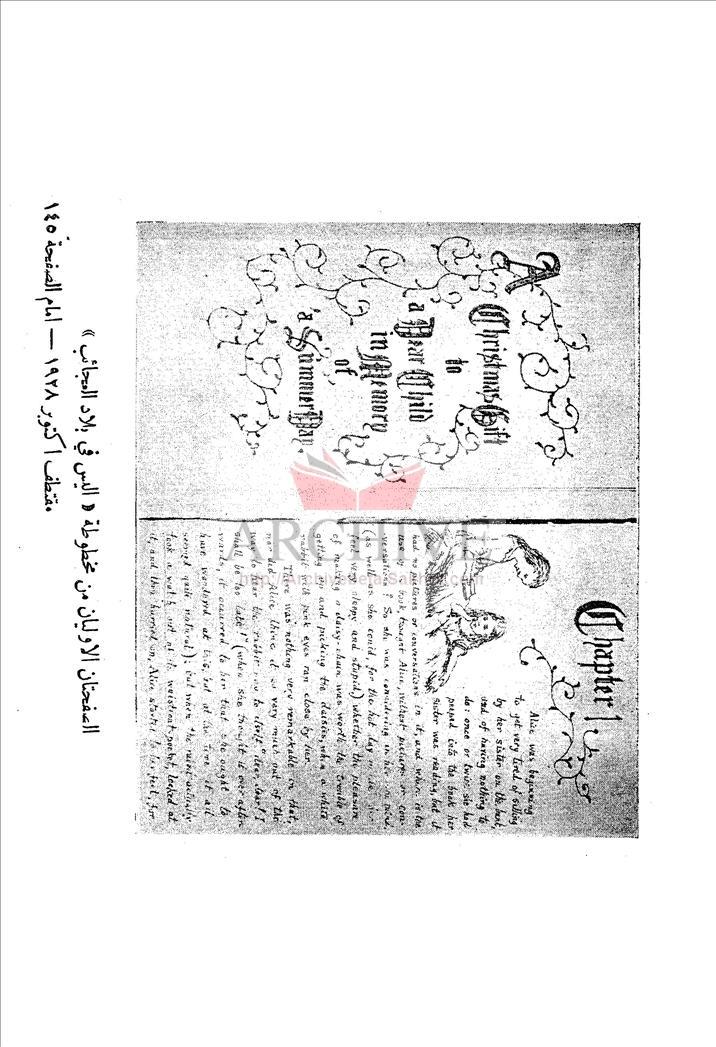 A
Christmas Gift
to
a Dear Child
in Memory
of
a Summer Day.
Chapter 1
Alice was beginning
to get very tired of sitting
by her sister on the bank,
and of having nothing to
do: once or twice she had
peeped into the book her
sister was reading, but it
had no pictures or conversations in it, and where is the
use of a book, thought Alice, without pictures or con-
versations? So she was considering in her own mind,
(as well as she could, for the hot day made her
feel very sleepy and stupid,) whether the pleasure
of making a daisy-chain was worth the trouble of
getting up and picking the daisies, when a white
rabbit with pink eyes ran close by her.
There was nothing very remarkable in that,
nor did Alice think it so very much out of the
way to hear the rabbit say to itself "dear, dear! I
shall be too late!" (when she thought it over after-
wards, it occurred to her that she ought to
have wondered at this, but at the time it all
seemed quite natural); but when the rabbit actually
took a watch out of its waistcoat-pocket, looked at
it, and then hurried on, Alice started to her feet, for
ARCHIVE
الصفحتان الاوليان من مخطوطة « اليس في بلاد العجائب »
مقتطف اكتوبر ١٩٢٨ — امام الصفحة ١٤٥